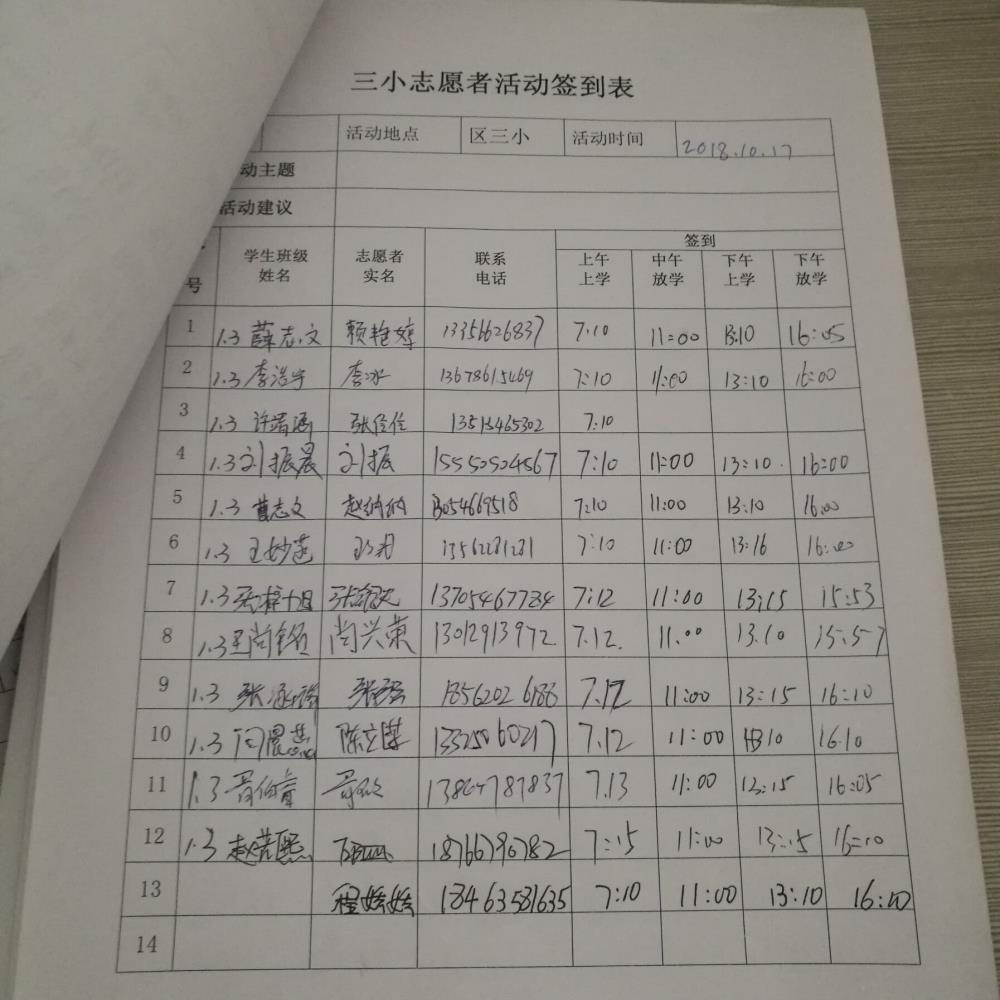 三小志愿者活动签到表
活动地点 区三小 活动时间 2018.10.17
动主题
活动建议
号 学生班级姓名 志愿者实名 联系电话 签到
上午上学 中午放学 下午上学 下午放学
1 1.3 薛志文 赖艳婷 13351626837 7:10 11:00 13:10 16:05
2 1.3 李浩宇 李冰 13678615469 7:10 11:00 13:10 16:00
3 1.3 许靖涵 张佳佳 13515465302 7:10
4 1.3 刘振晨 刘振 15550504567 7:10 11:00 13:10 16:00
5 1.3 曹志文 赵纳纳 13054669518 7:10 11:00 13:10 16:00
6 1.3 王妙莲 13562281281 7:10 11:00 13:16 16:00
7 1.3 13705467734 7:12 11:00 13:15 15:53
8 1.3 王尚铭 尚兴荣 13012913972 7.12. 11.00 13.10 15:57
9 1.3 张 张强 1856202 6186 7.12 11:00 13:15 16:10
10 1.3 闫晨 陈立 13325060217 7.12 11:00 13:10 16.10
11 1.3 7.13 11:00 13:15 16:05
12 1.3 赵 18766790782 7:15 11:00 13:15 16:10
13 程娇娇 18463581635 7:10 11:00 13:10 16:00
14